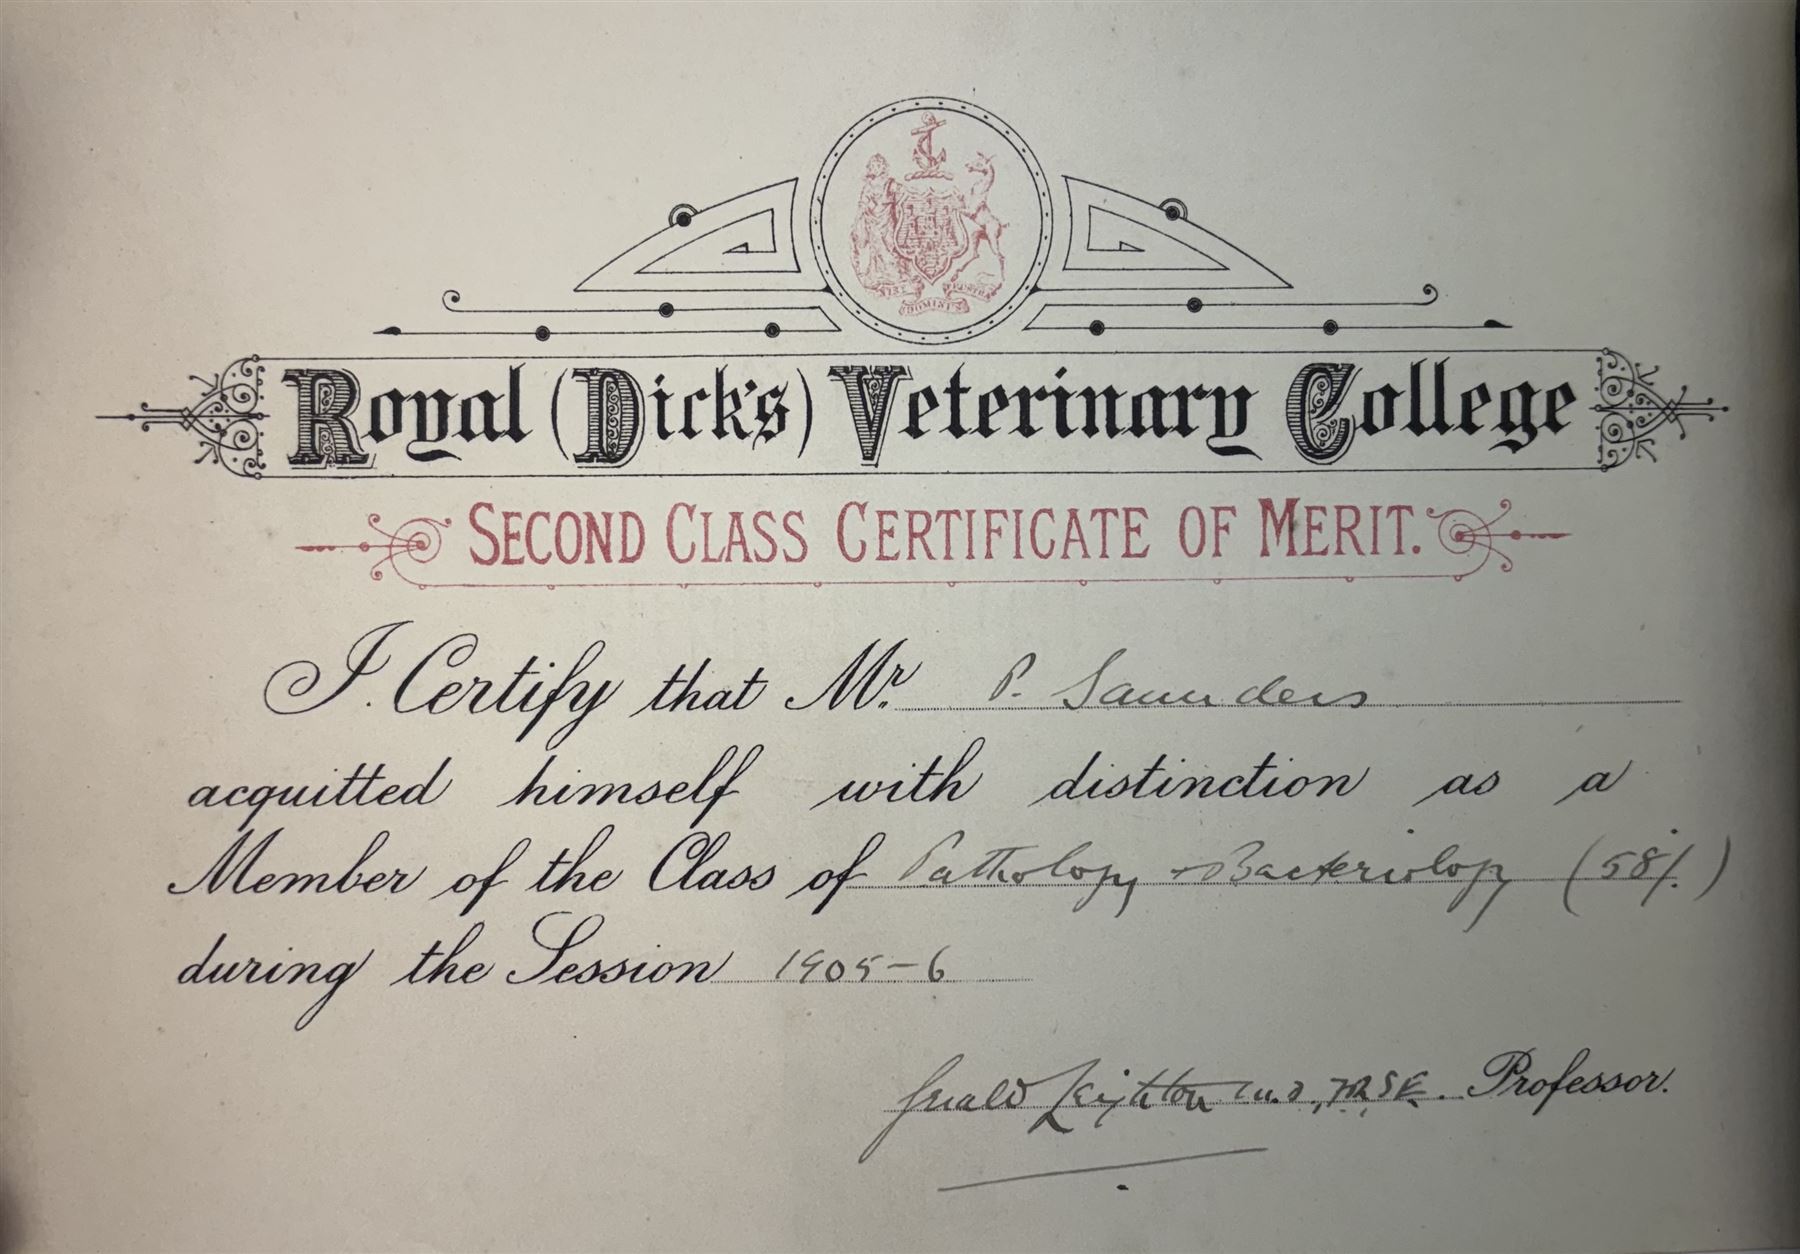 NISI DOMINUS FRUSTRA
Royal (Dick's) Veterinary College
SECOND CLASS CERTIFICATE OF MERIT.
I Certify that Mr. P. Saunders
acquitted himself with distinction as a
Member of the Class of Pathology & Bacteriology (58%)
during the Session 1905-6
Gerald Leighton M.D., F.R.S.E. Professor.